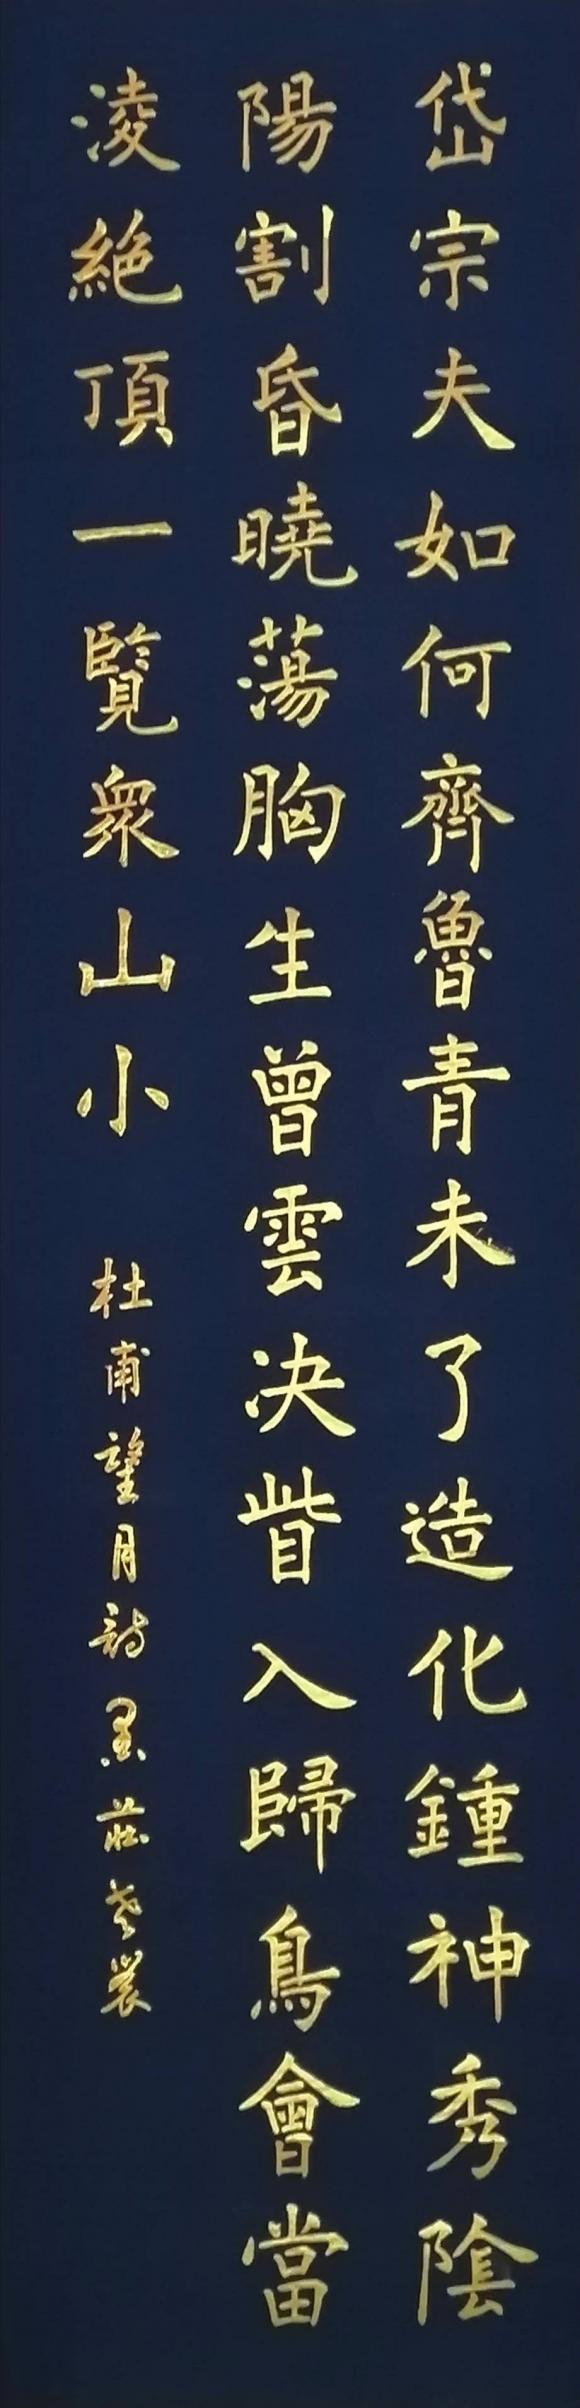 岱宗夫如何齊魯青未了造化鍾神秀陰
陽割昏曉蕩胸生曾雲决眥入歸鳥會當
淩絶頂一覽衆山小 杜甫望月詩